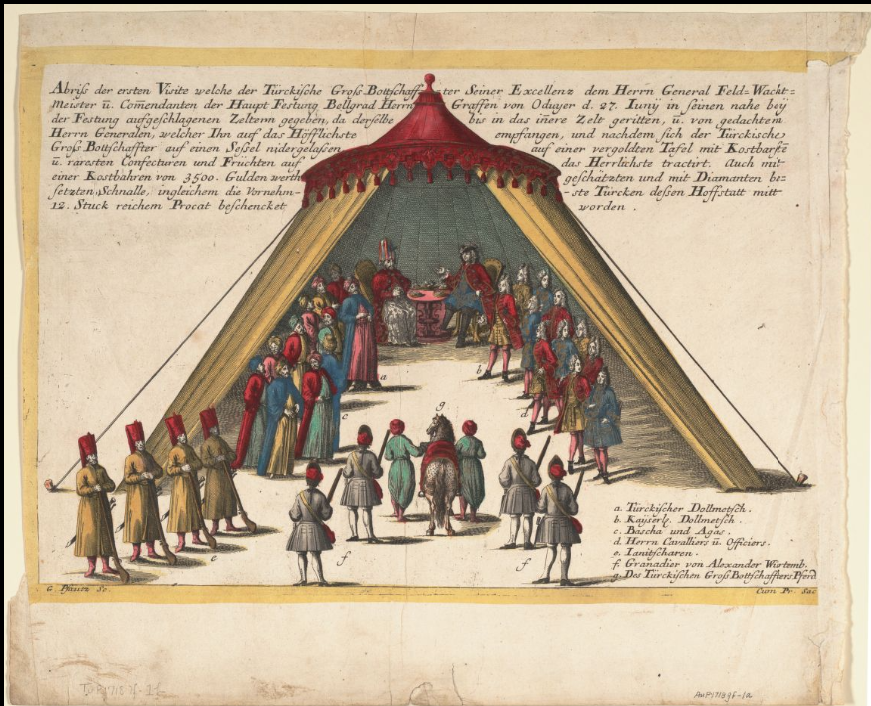 Abriß der ersten Visite welche der Türckische Groß Bottschaffter Seiner Excellenz dem Herrn General Feld=Wacht=
meister ü. Com̄endanten der Haupt Festung Bellgrad Herrn Graffen von Oduÿer d. 27. Iunÿ in seinen nahe beÿ
der Festung aufgeschlagenen Zeltern gegeben, da derselbe bis in das iñere Zelt geritten, ü. von gedachtem
Herrn Generalen, welcher Ihn auf das Höfflichste empfangen, und nachdem sich der Türckische
Groß Bottschaffter auf einem Seßel nidergelaßen, auf einer vergoldten Tafel mit Kostbarste
ü. raresten Confecturen und Früchten auf das Herrlichste tractirt. Auch mit
einer Kostbahren von 3500. Gulden werth geschätzten und mit Diamanten be=
setzten Schnalle, ingleichem die Vornehm=ste Türcken deßen Hoffstatt mitt
12. Stuck reichem Procat beschencket worden.
a
b
c
d
g
e
f
f
a. Türckischer Dollmetsch.
b. Kaÿserle. Dollmetsch.
c. Bascha und Agas.
d. Herrn Cavalliers ü. Officiers.
e. Ianitscharen.
f. Granadier von Alexander Wirtemb.
g. Des Türckischen Groß Bottschaffters Pferd
C. Pfautz Sc.
Cum Pr. Sac
AnP1718gf-1a